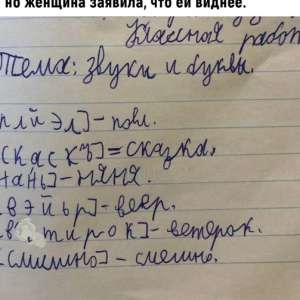 но женщина заявила, что ей виднее.
Классная работ
Тема: звуки и буквы.
]-
[скаскъ]=сказка.
нань]-няня.
вэйьр]-веер.
тирок]-ветерок.
[смишно]-смешно.